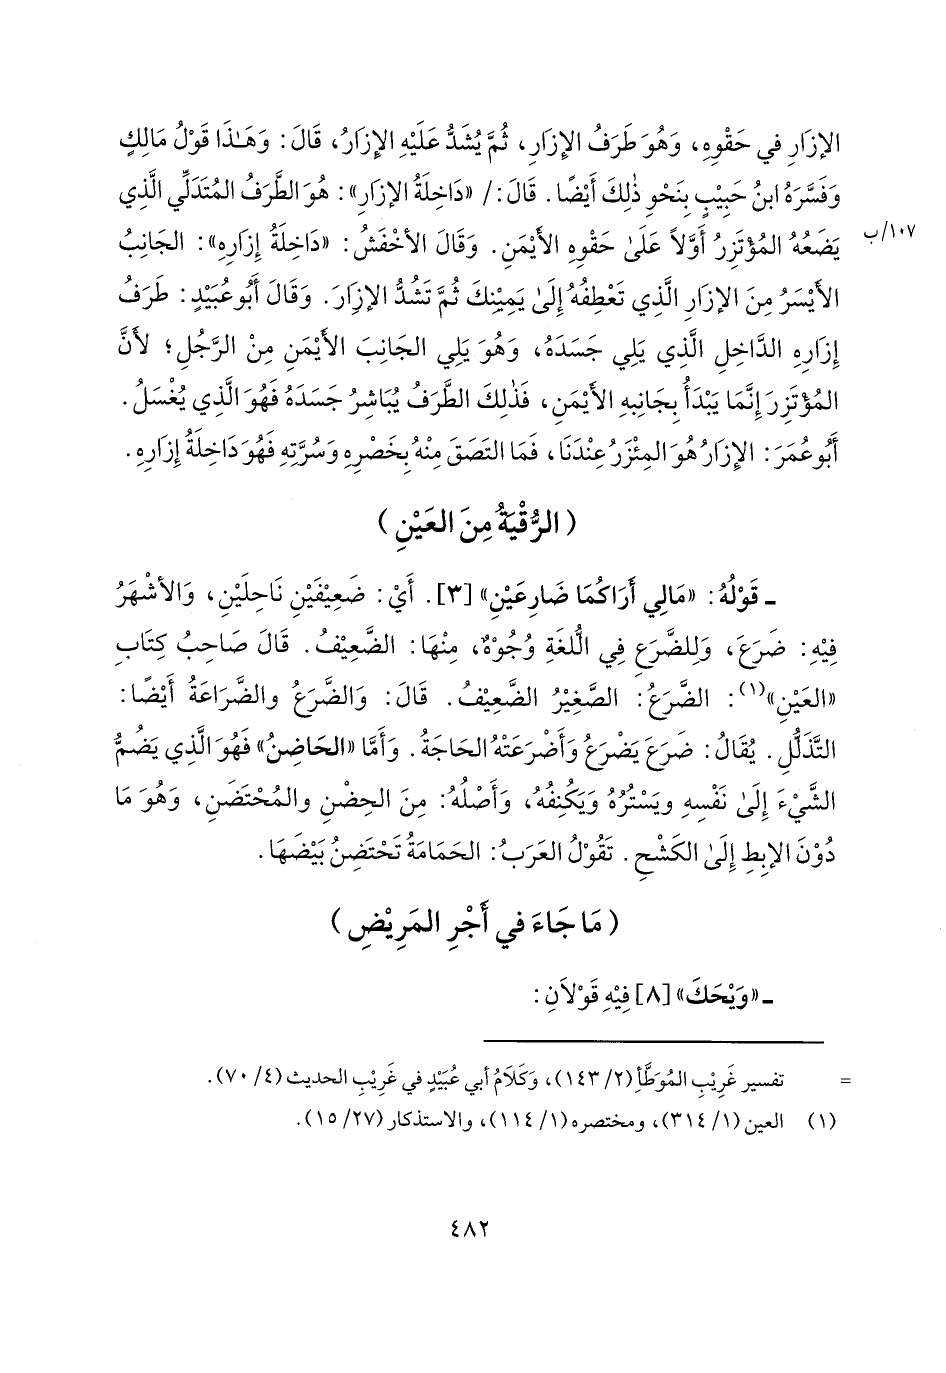 الإزَارِ في حَقْوِهِ، وَهُوَ طَرَفُ الإزَارِ، ثُمَّ يُشَدُّ عَلَيْهِ الإزَارُ، قَالَ: وَهَـٰذَا قَوْلُ مَالِكٍ
وَفَسَّرَهُ ابنُ حَبِيْبٍ بِنَحْوِ ذٰلِكَ أَيْضًا. قَالَ: / «دَاخِلَةُ الإزَارِ»: هُوَ الطَّرَفُ المُتَدَلِّي الَّذِي
يَضَعُهُ المُؤْتَزِرُ أَوَّلاً عَلَىٰ حَقْوِهِ الأيْمَنِ. وَقَالَ الأخْفَشُ: «دَاخِلَةُ إِزَارِهِ»: الجَانِبُ
١٠٧/ب
الأيْسَرُ مِنَ الإزَارِ الَّذِي تَعْطِفُهُ إِلَىٰ يَمِيْنِكَ ثُمَّ تَشُدُّ الإزَارَ. وَقَالَ أَبُو عُبَيْدٍ: طَرَفُ
إِزَارِهِ الدَّاخِلِ الَّذِي يَلِي جَسَدَهُ، وَهُوَ يَلِي الجَانِبَ الأيْمَنِ مِنْ الرَّجُلِ؛ لأنَّ
المُؤْتَزِرَ إِنَّمَا يَبْدَأُ بِجَانِبِهِ الأيْمَنِ، فَذٰلِكَ الطَّرَفُ يُبَاشِرُ جَسَدَهُ فَهُوَ الَّذِي يُغْسَلُ.
أَبُو عُمَرَ: الإزَارُ هُوَ المِئْزَرُ عِنْدَنَا، فَمَا التَصَقَ مِنْهُ بِخَصْرِهِ وَسُرَّتِهِ فَهُوَ دَاخِلَةُ إِزَارِهِ.
( الرُّقْيَةُ مِنَ العَيْنِ )
ـ قَوْلُهُ: «مَالِي أَرَاكُمَا ضَارِعَيْنِ» [٣]. أَيْ: ضَعِيْفَيْنِ نَاحِلَيْنِ، وَالأشْهَرُ
فِيْهِ: ضَرَعَ، وَلِلضَّرَعِ فِي اللُّغَةِ وُجُوْهٌ، مِنْهَا: الضَّعِيْفُ. قَالَ صَاحِبُ كِتَابِ
«العَيْنِ»(١): الضَّرَعُ: الصَّغِيْرُ الضَّعِيْفُ. قَالَ: وَالضَّرَعُ والضَّرَاعَةُ أَيْضًا:
التَّذَلُّلِ. يُقَالُ: ضَرَعَ يَضْرَعُ وَأَضْرَعَتْهُ الحَاجَةُ. وَأَمَّا «الحَاضِنُ» فَهُوَ الَّذِي يَضُمُّ
الشَّيْءَ إِلَىٰ نَفْسِهِ ويَسْتُرُهُ وَيَكْنِفُهُ، وَأَصْلُهُ: مِنَ الحِضْنِ والمُحْتَضَنِ، وَهُوَ مَا
دُوْنَ الإبِطِ إِلَىٰ الكَشْحِ. تَقُوْلُ العَرَبُ: الحَمَامَةُ تَحْتَضِنُ بَيْضَهَا.
( مَا جَاءَ في أَجْرِ المَرِيْضِ )
ـ «وَيْحَكَ» [٨] فِيْهِ قَوْلاَنِ:
= تفسير غَرِيْبِ المُوَطَّأِ (٢/ ١٤٣)، وَكَلاَمُ أبي عُبَيْدٍ في غَرِيْبِ الحديث (٤/ ٧٠).
(١) العين (١/ ٣١٤)، ومختصره (١/ ١١٤)، والاستذكار (٢٧/ ١٥).
٤٨٢